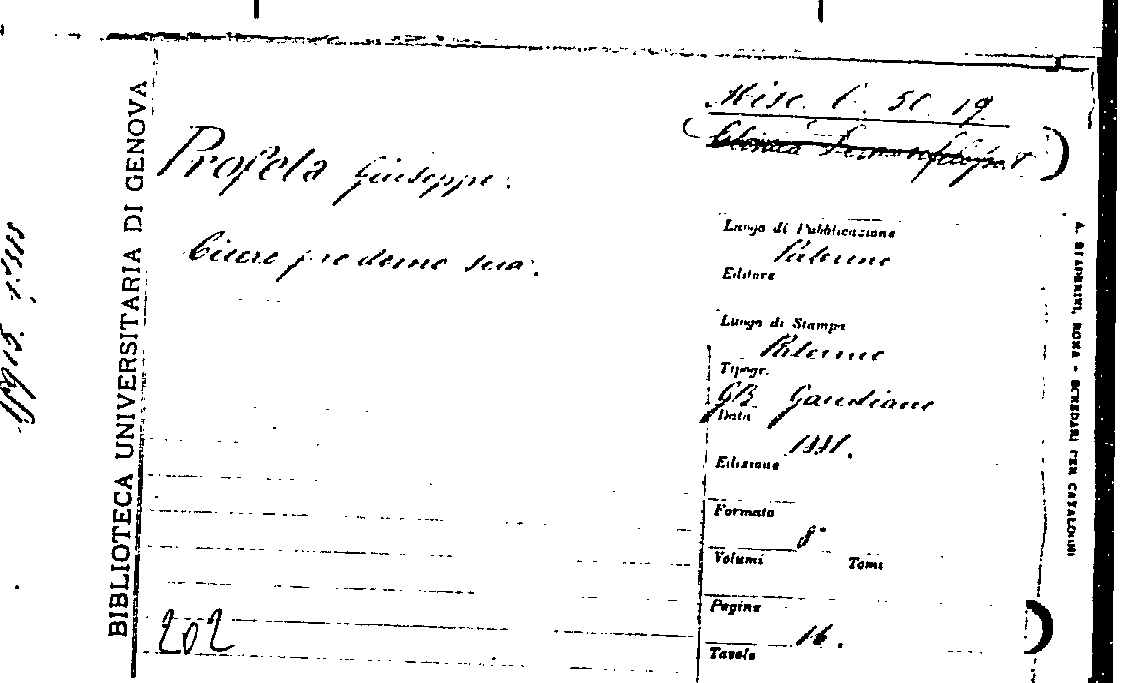 Misc. C. 51. 19
Profeta Giuseppe.
Cicero pro domo sua.
Luogo di Pubblicazione
Palermo
Editore
Luogo di Stampa
Palermo
Tipogr.
GB. Gaudiano
Data
1881.
Edizione
Formato
8°
Volumi Tomi
Pagine
16.
Tavole
202
BIBLIOTECA UNIVERSITARIA DI GENOVA
A. STADERINI, ROMA - SCHEDARI PER CATALOGHI